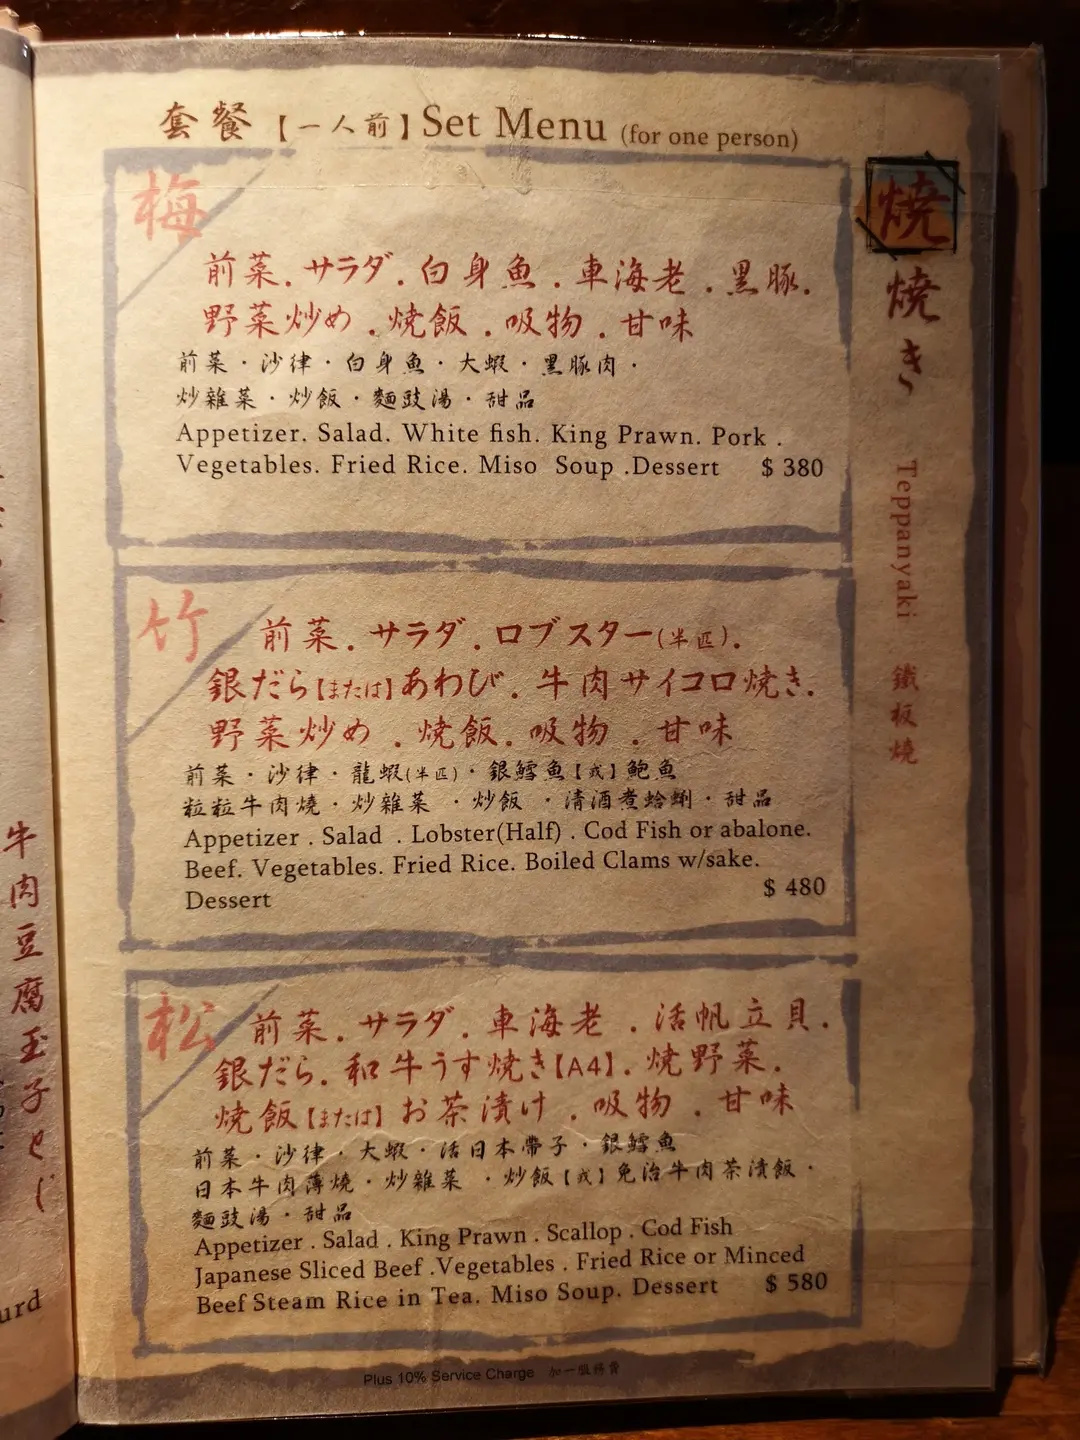 套餐【一人前】Set Menu (for one person)
梅
前菜.サラダ.白身魚.車海老.黒豚.
野菜炒め.焼飯.吸物.甘味
前菜·沙律·白身魚·大蝦·黑豚肉·
炒雜菜·炒飯·麵豉湯·甜品
Appetizer. Salad. White fish. King Prawn. Pork .
Vegetables. Fried Rice. Miso Soup .Dessert $ 380
竹
前菜.サラダ.ロブスター(半匹).
銀だら【または】あわび.牛肉サイコロ焼き.
野菜炒め.焼飯.吸物.甘味
前菜·沙律·龍蝦(半匹)·銀鱈魚【或】鮑魚
粒粒牛肉燒·炒雜菜·炒飯·清酒煮蛤蜊·甜品
Appetizer . Salad . Lobster(Half) . Cod Fish or abalone.
Beef. Vegetables. Fried Rice. Boiled Clams w/sake.
Dessert $ 480
松
前菜.サラダ.車海老.活帆立貝.
銀だら.和牛うす焼き【A4】.焼野菜.
焼飯【または】お茶漬け.吸物.甘味
前菜·沙律·大蝦·活日本帶子·銀鱈魚
日本牛肉薄燒·炒雜菜·炒飯【或】免治牛肉茶漬飯·
麵豉湯·甜品
Appetizer . Salad . King Prawn . Scallop . Cod Fish
Japanese Sliced Beef .Vegetables . Fried Rice or Minced
Beef Steam Rice in Tea. Miso Soup. Dessert $ 580
Plus 10% Service Charge 加一服務費
焼
焼き
Teppanyaki
鐵板燒
牛肉豆腐玉子とじ
urd